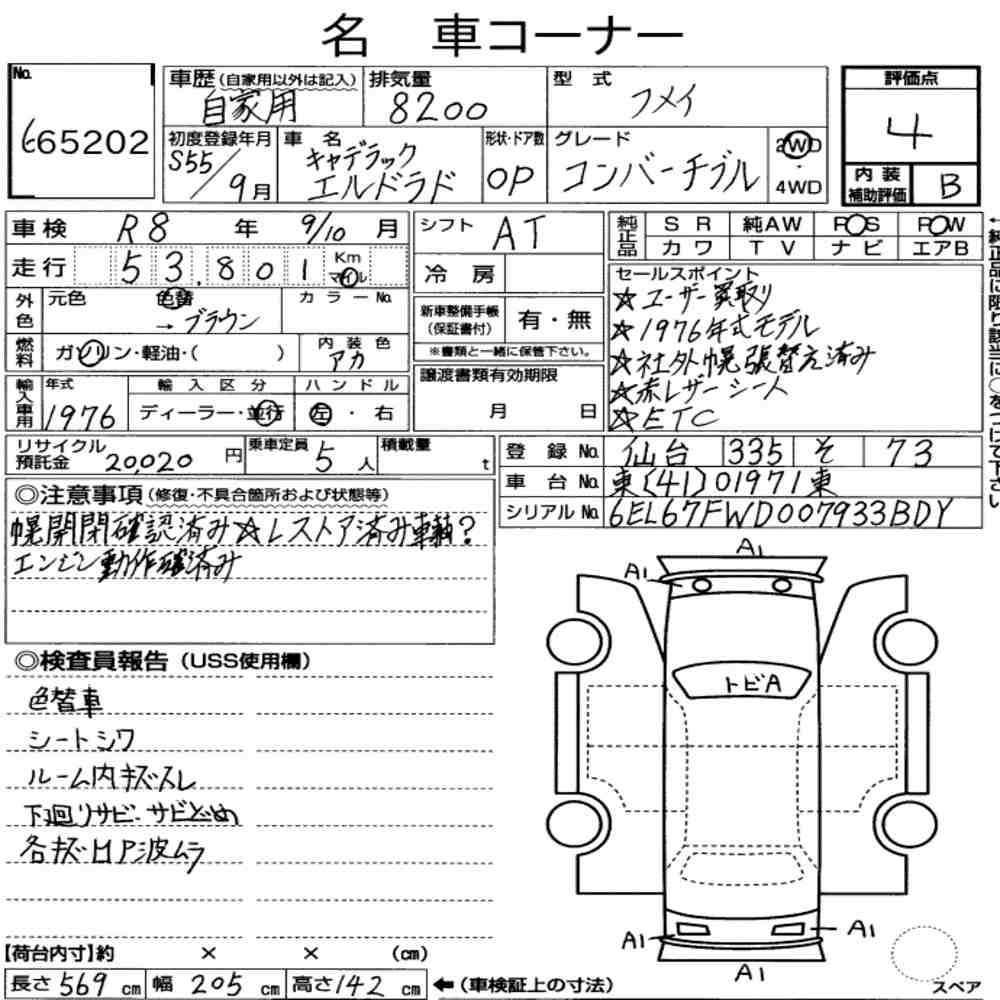 名 車コーナー
No.
665202
車歴(自家用以外は記入)
自家用
排気量
8200
型式
フメイ
評価点
4
初度登録年月
S55/9月
車名
キャデラック
エルドラド
形状・ドア数
OP
グレード
コンバーチブル
2WD
・
4WD
内装
補助評価
B
車検 R8 年 9/10 月
シフト AT
純正品
SR 純AW PS PW
カワ TV ナビ エアB
←純正品に限り該当に○をつけて下さい
走行 53,801
Km
マイル
冷房
外色
元色
色替
→ブラウン
カラーNo.
新車整備手帳
(保証書付)
有・無
※書類と一緒に保管下さい。
セールスポイント
☆ユーザー買取り
☆1976年式モデル
☆社外幌張替え済み
☆赤レザーシート
☆ETC
燃料
ガソリン・軽油・( )
内装色
アカ
輸入車用
年式
1976
輸入区分
ディーラー・並行
ハンドル
左・右
譲渡書類有効期限
月 日
リサイクル
預託金 20,020 円
乗車定員 5 人
積載量 t
登録No. 仙台 335 そ 73
車台No. 東[41]01971東
シリアルNo. 6EL67FWD007933BDY
◎注意事項(修復・不具合箇所および状態等)
幌開閉確認済み☆レストア済み車輌?
エンジン動作確認済み
◎検査員報告(USS使用欄)
色替車
シートシワ
ルーム内キズスレ
下廻りサビ・サビどめ
各キズ凹ア波ムラ
A1
A1
トビA
A1
A1
A1
スペア
【荷台内寸】約 × × (cm)
長さ 569 cm 幅 205 cm 高さ 142 cm ←(車検証上の寸法)